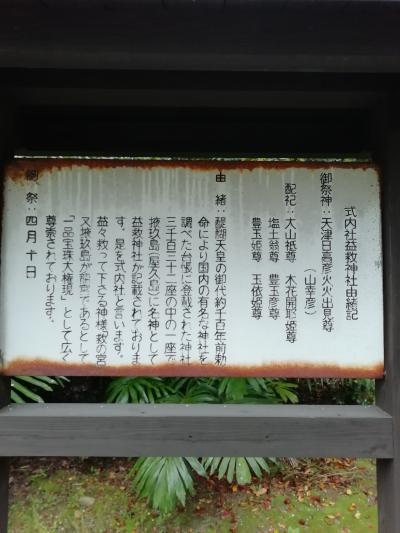 式内社益救神社由緒記
御祭神：天津日高彦火火出見尊
（山幸彦）
配祀：大山祗尊　木花開耶姫尊
塩土翁尊　豊玉彦尊
豊玉姫尊　玉依姫尊
由　緒：醍醐天皇の御代約千百年前勅
命により国内の有名な神社を
調べた台帳に登載された神社
三千百三十二座の中の一座で
掖玖島（屋久島）に名神として
益救神社が記載されておりま
す、是を式内社と言います。
益々救って下さる神様救の宮
又掖玖島が龍宮であるとして
「一品宝珠大権現」として広く
尊崇されております。
例　祭：四月十日